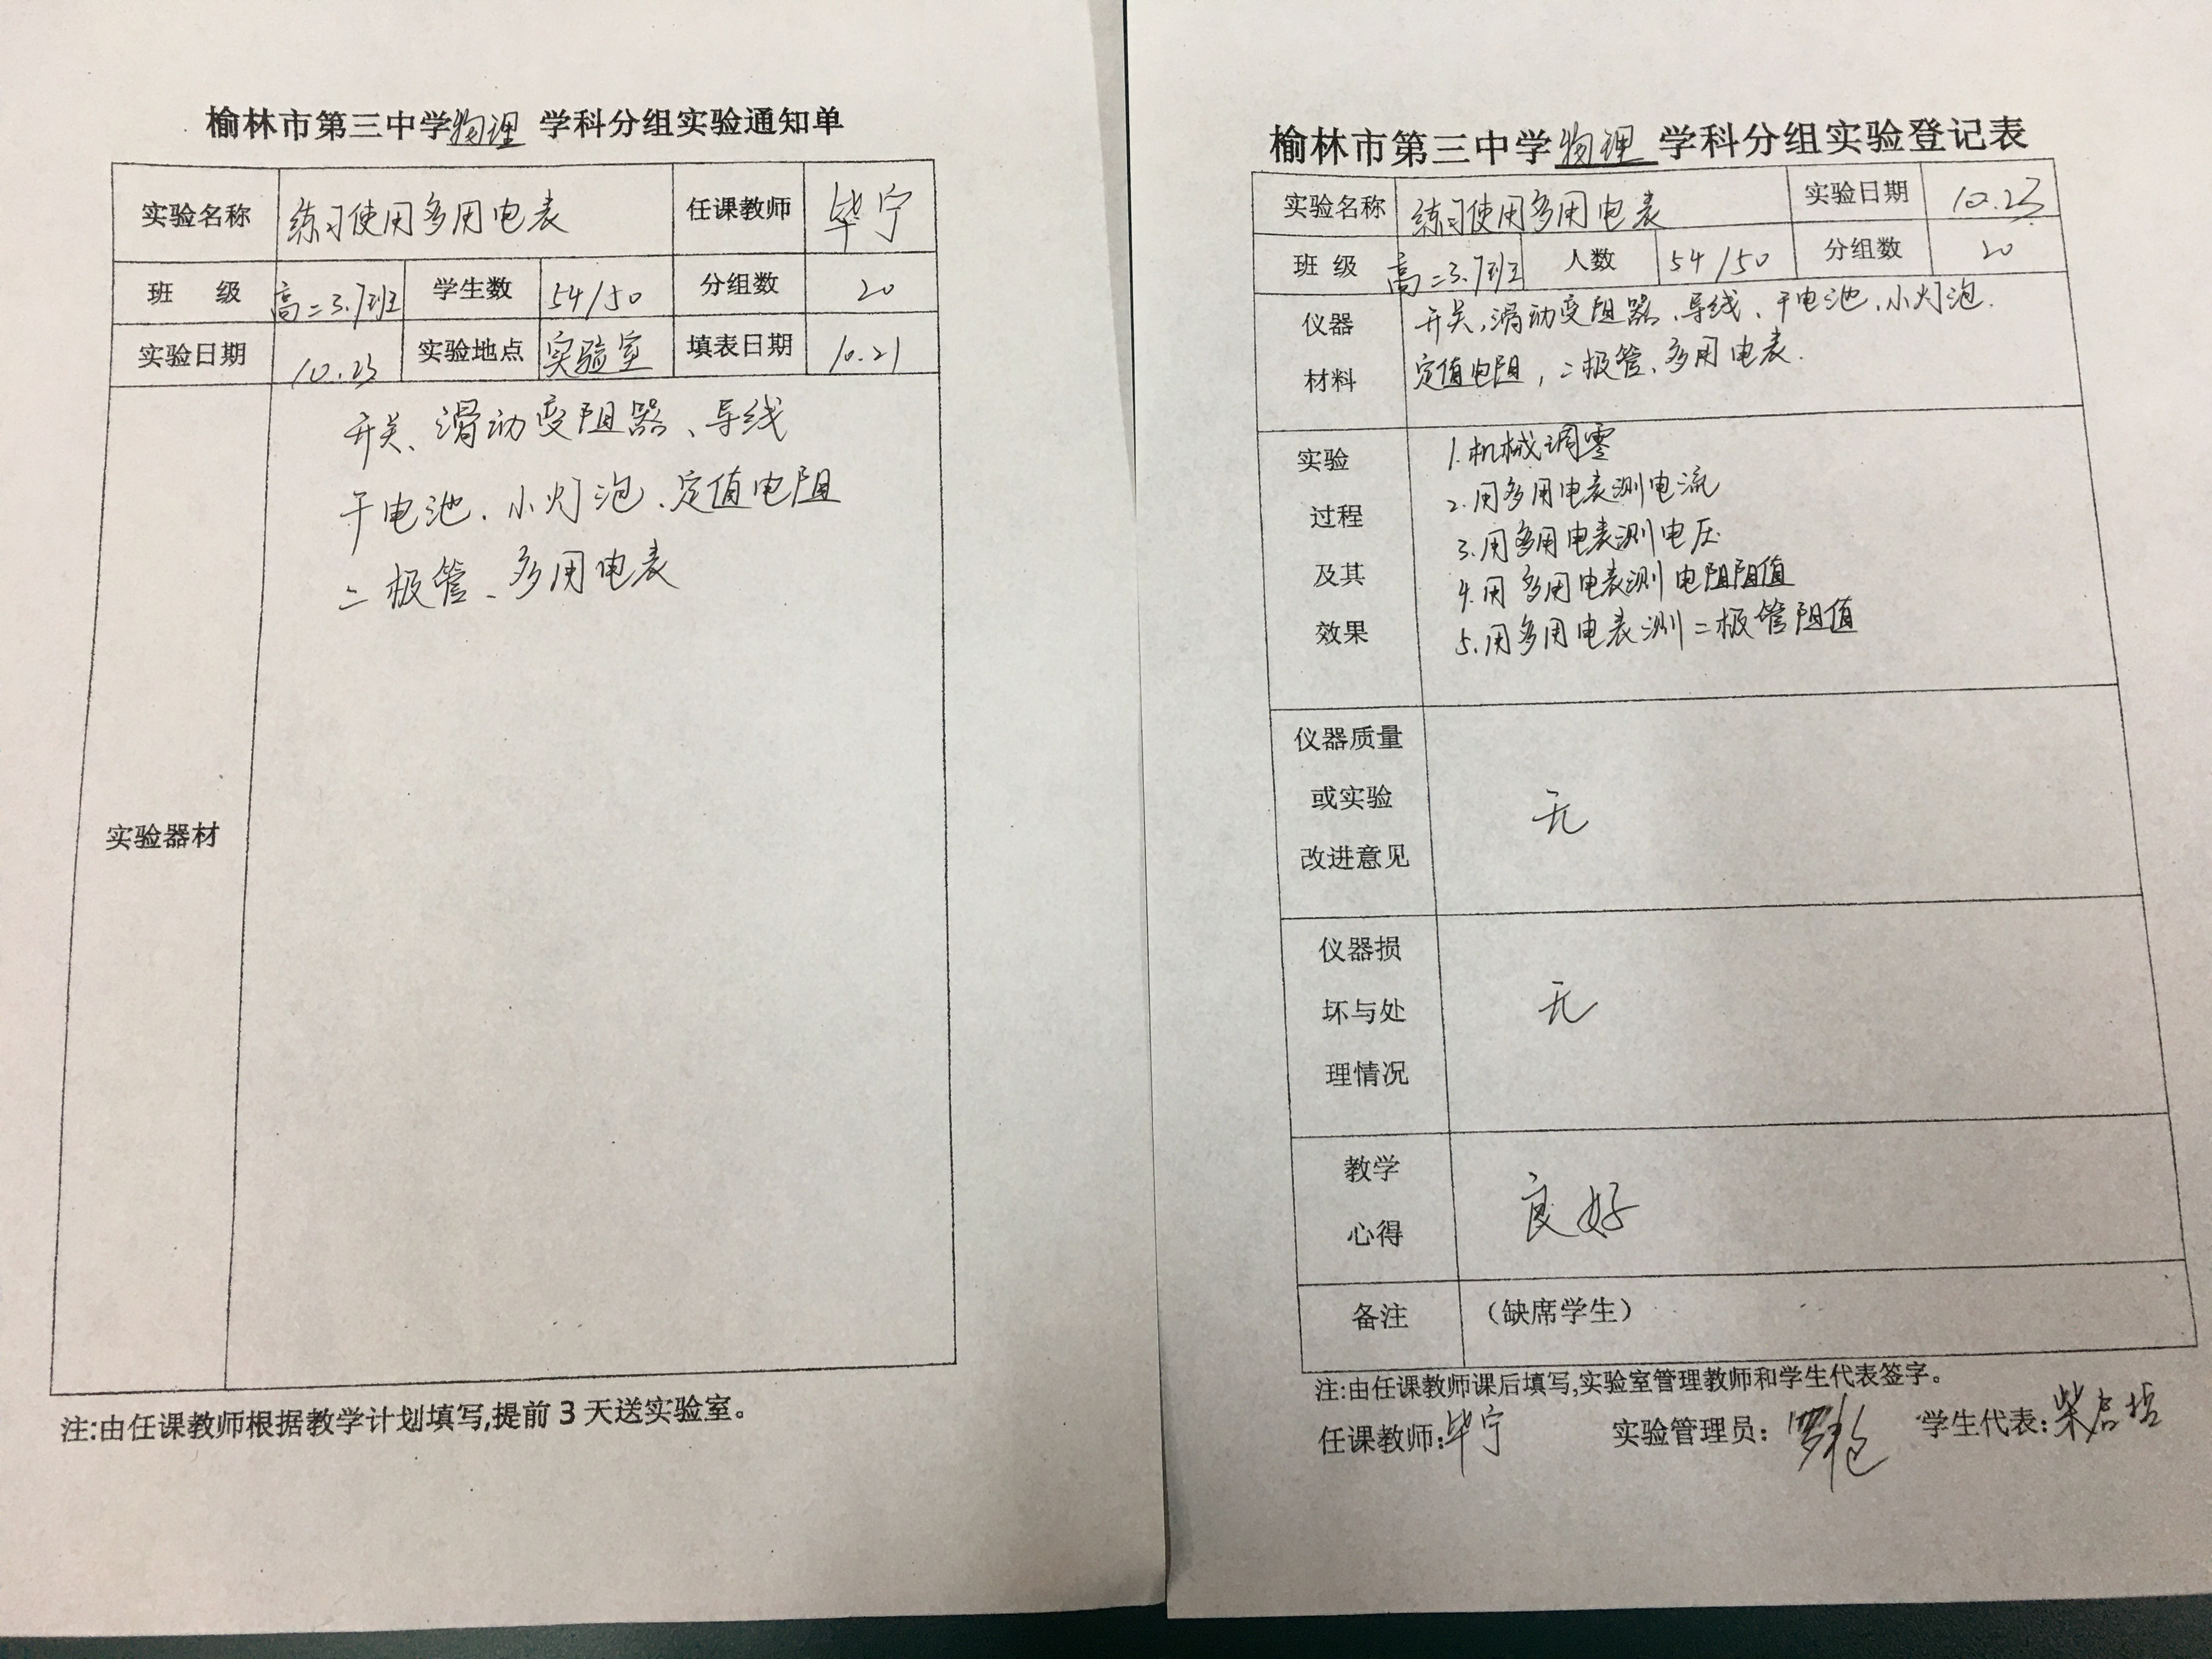 榆林市第三中学物理 学科分组实验通知单
实验名称 练习使用多用电表 任课教师 毕宁
班 级 高二3.7班 学生数 54/50 分组数 20
实验日期 10.23 实验地点 实验室 填表日期 10.21
实验器材
开关、滑动变阻器、导线
干电池、小灯泡、定值电阻
二极管、多用电表
注:由任课教师根据教学计划填写,提前3天送实验室。
榆林市第三中学物理 学科分组实验登记表
实验名称 练习使用多用电表 实验日期 10.23
班 级 高二3.7班 人数 54/50 分组数 20
仪器 开关、滑动变阻器、导线、干电池、小灯泡.
材料 定值电阻,二极管、多用电表.
实验 1.机械调零
过程 2.用多用电表测电流
3.用多用电表测电压
及其 4.用多用电表测电阻阻值
效果 5.用多用电表测二极管阻值
仪器质量
或实验 无
改进意见
仪器损
坏与处 无
理情况
教学
心得 良好
备注 (缺席学生)
注:由任课教师课后填写,实验室管理教师和学生代表签字。
任课教师:毕宁 实验管理员: 学生代表: